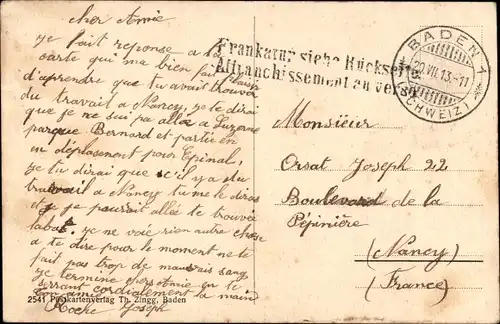 cher Amie
je fait reponse a la
carte qui ma bien fait plaisir
d'aprendre que tu avait trouver
du travail a Nancy je te dirai
que je ne sui pas allé a Luzerne
parque Bernard et partie en
en déplasement pour Epinal,
je tu dirai que s'il y a du
travail a Nancy tu me le diras
je pourrait allée te trouvée
labat. je ne voie rien autre chose
a te dire pour le moment ne te
fait pas trop de mauvais sang
je termine cher Amie en te
serrant cordialement la main
ton ami
Roche Joseph
Frankatur siehe Rückseite
Affranchissement au verso
BADEN 1
20 VII. 13.-11
(SCHWEIZ)
Monsieur
Orsat Joseph 22
Boulevard de la
Pépinière
(Nancy)
(France)
2541 Postkartenverlag Th. Zingg, Baden